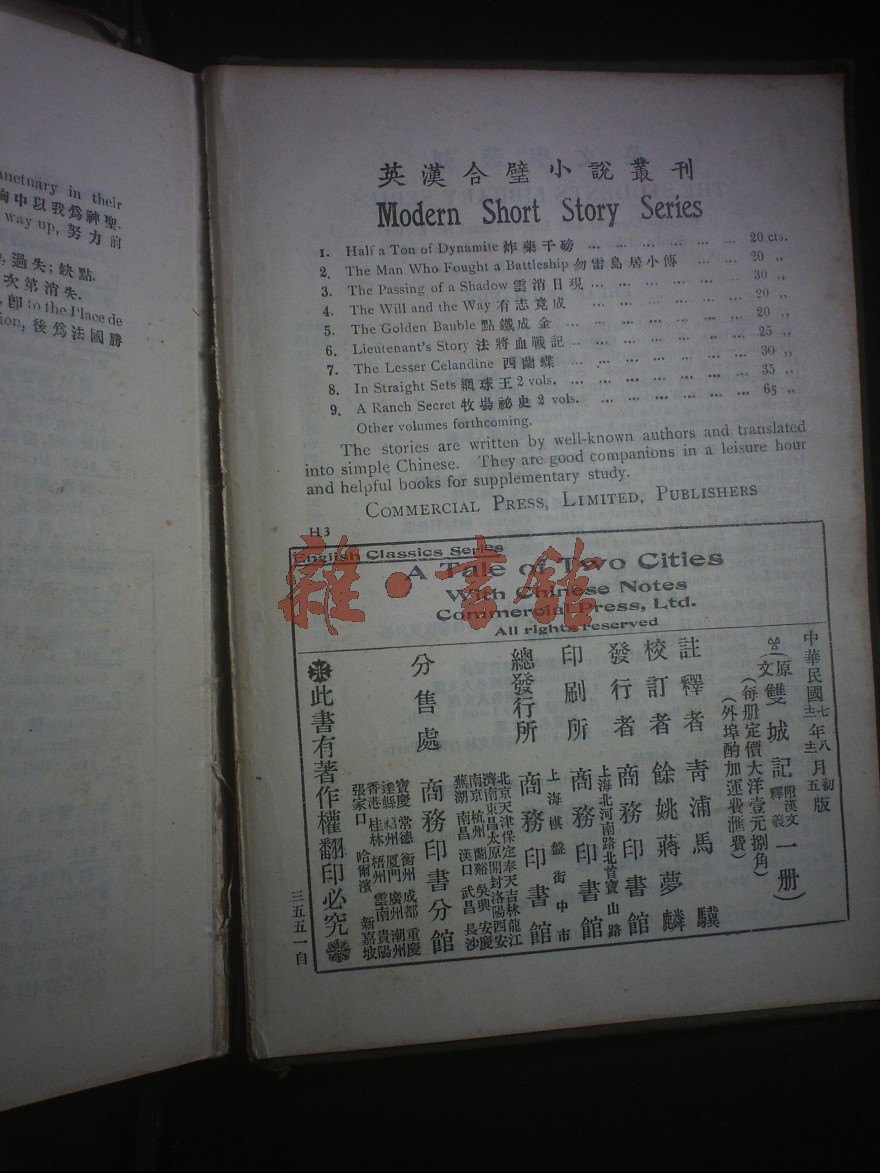 anctuary in their
胸中以我爲神聖.
way up, 努力前
過失; 缺點.
次第消失.
卽 to the Place de
ion, 後爲法國勝
英漢合璧小說叢刊
Modern Short Story Series
1. Half a Ton of Dynamite 炸藥千磅 ... ... ... ... ... ... 20 cts.
2. The Man Who Fought a Battleship 勿雷島居小傳 ... ... 20 ,,
3. The Passing of a Shadow 雲消日現 ... ... ... ... ... ... 30 ,,
4. The Will and the Way 有志竟成 ... ... ... ... ... ... 20 ,,
5. The Golden Bauble 點鐵成金 ... ... ... ... ... ... 20 ,,
6. Lieutenant's Story 法將血戰記 ... ... ... ... ... ... 25 ,,
7. The Lesser Celandine 西蘭蝶 ... ... ... ... ... ... 30 ,,
8. In Straight Sets 網球王 2 vols. ... ... ... ... ... ... 35 ,,
9. A Ranch Secret 牧場祕史 2 vols. ... ... ... ... ... ... 65 ,,
Other volumes forthcoming.
The stories are written by well-known authors and translated
into simple Chinese. They are good companions in a leisure hour
and helpful books for supplementary study.
COMMERCIAL PRESS, LIMITED, PUBLISHERS
H3
English Classics Series
A Tale of Two Cities
With Chinese Notes
Commercial Press, Ltd.
All rights reserved
雜·書館
中華民國七年八月初版
十二年十二月五版
(原文雙城記附漢文釋義一册)
(每册定價大洋壹元捌角)
(外埠酌加運費滙費)
註釋者 靑浦馬驥
校訂者 餘姚蔣夢麟
發行者 商務印書館
上海北河南路北首寶山路
印刷所 商務印書館
上海棋盤街中市
總發行所 商務印書館
北京天津保定奉天吉林龍江
濟南東昌太原開封洛陽西安
南京杭州蘭谿吳興安慶
蕪湖南昌漢口武昌長沙
分售處 商務印書分館
寶慶常德衡州成都重慶
達縣福州厦門廣州潮州
香港桂林梧州雲南貴陽
張家口哈爾濱新嘉坡
此書有著作權翻印必究
三五五一自